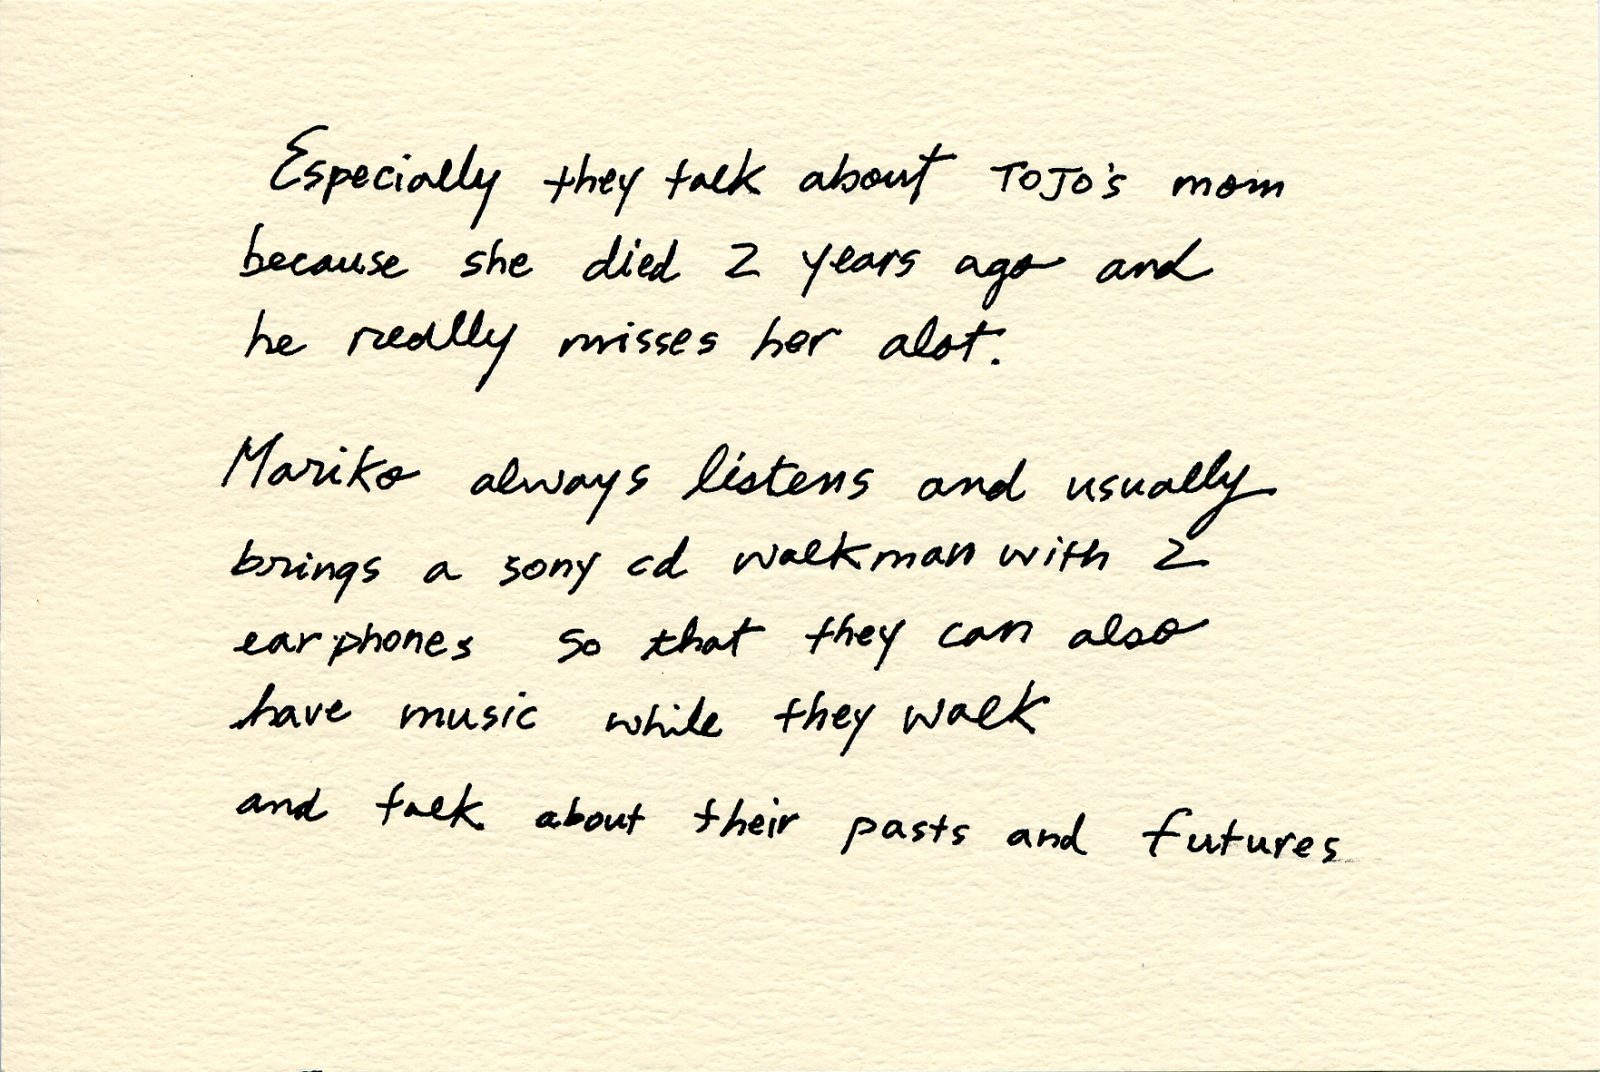 Especially they talk about ToJo's mom
because she died 2 years ago and
he really misses her alot.
Mariko always listens and usually
brings a sony cd walkman with 2
earphones so that they can also
have music while they walk
and talk about their pasts and futures